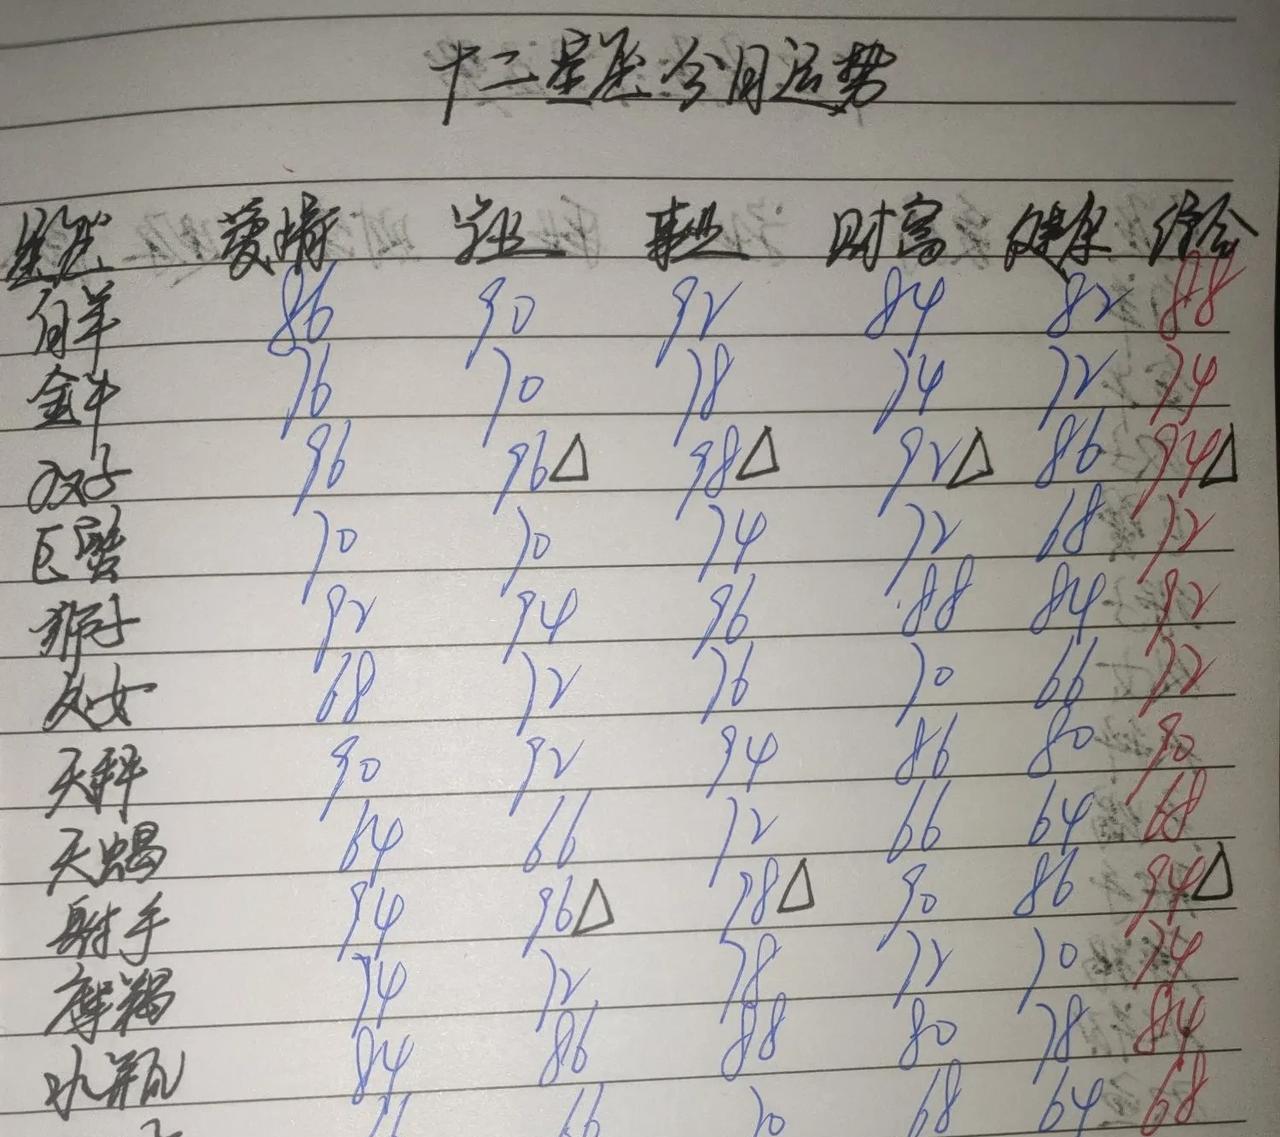 十二星座今日运势
星座 爱情 学业 事业 财富 健康 综合
白羊 86 90 92 84 82 88
金牛 76 70 78 74 72 74
双子 96 96△ 98△ 92△ 86 94△
巨蟹 70 70 74 72 68 72
狮子 92 94 96 88 84 92
处女 68 72 76 70 66 72
天秤 90 92 94 86 80 90
天蝎 64 66 72 66 64 68
射手 94 96△ 98△ 90 86 94△
摩羯 74 72 78 72 70 74
水瓶 84 86 88 80 78 84
66 70 68 64 68